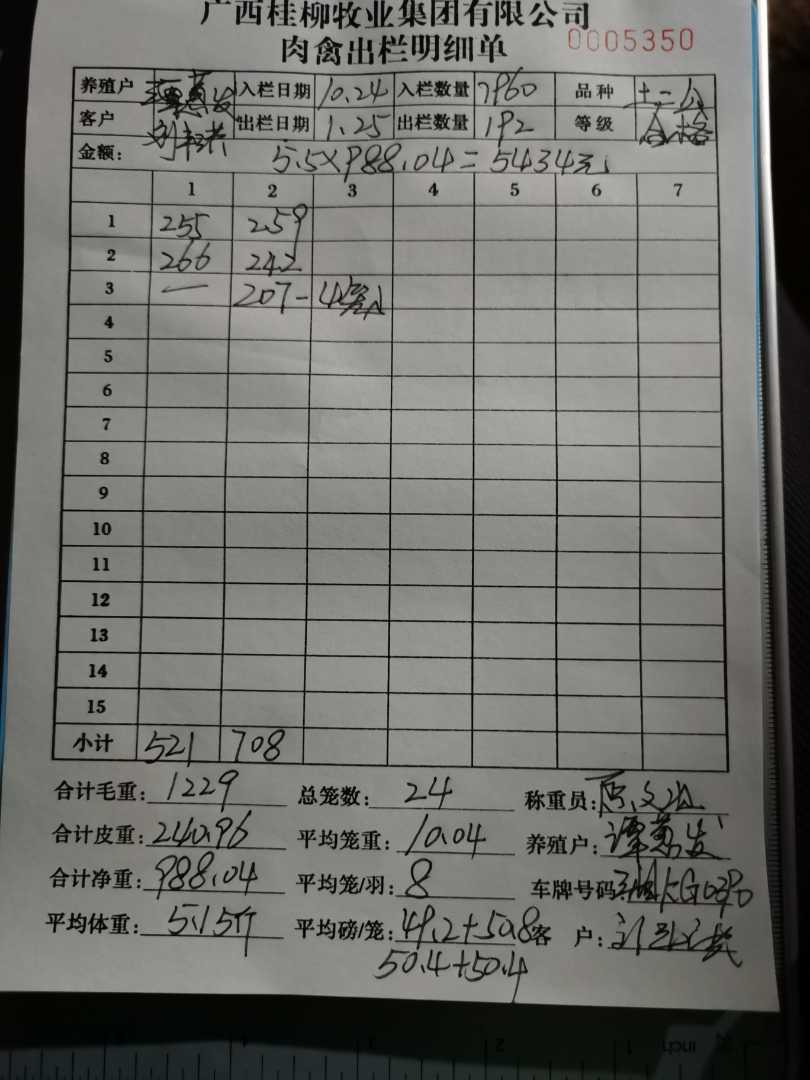 广西桂柳牧业集团有限公司
肉禽出栏明细单 0005350
养殖户 入栏日期 10.24 入栏数量 7960 品种
客户 出栏日期 1.25 出栏数量 192 等级 合格
金额: 5.5×988.04=5434元
1 2 3 4 5 6 7
1 255 259
2 266 242
3 — 207-4
4
5
6
7
8
9
10
11
12
13
14
15
小计 521 708
合计毛重: 1229 总笼数: 24 称重员:
合计皮重: 240.96 平均笼重: 10.04 养殖户:
合计净重: 988.04 平均笼/羽: 8 车牌号码
平均体重: 5.15斤 平均磅/笼: 49.2+50.8 客户:
50.4+50.4
inch